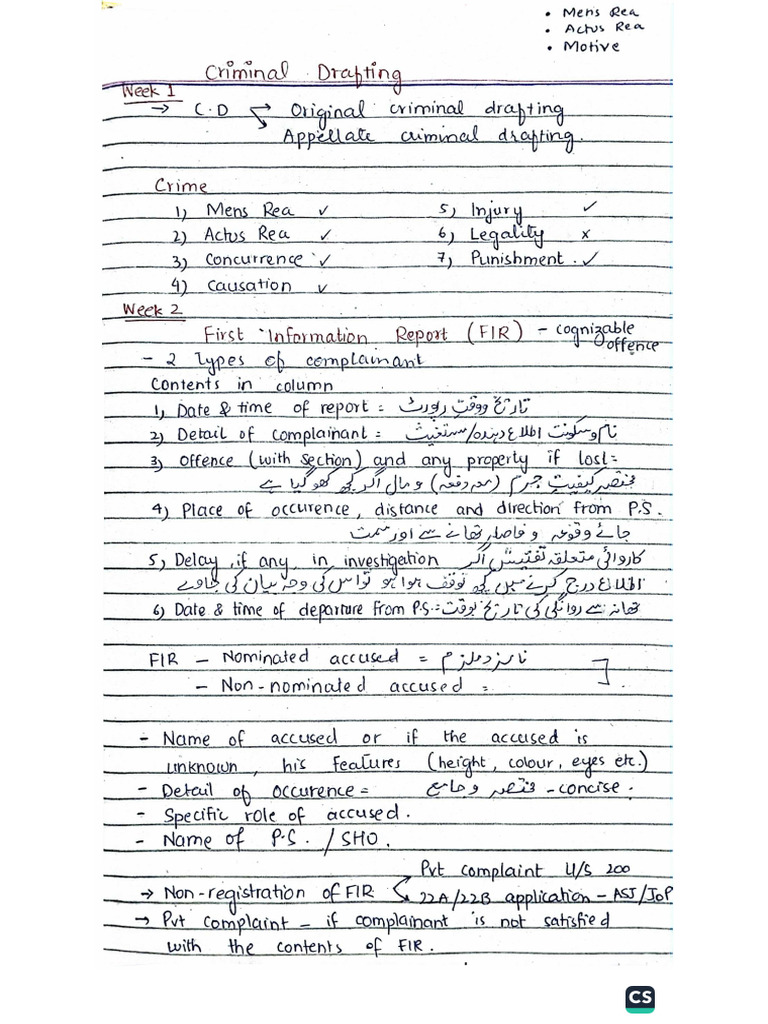 • Mens Rea
• Actus Rea
• Motive
Criminal Drafting
Week 1
→ C.D → Original criminal drafting
→ Appellate criminal drafting.
Crime
1) Mens Rea ✓ 5) Injury ✓
2) Actus Rea ✓ 6) Legality x
3) Concurrence ✓ 7) Punishment. ✓
4) Causation ✓
Week 2
First Information Report (FIR) - cognizable offence
- 2 Types of complainant
Contents in column
1) Date & time of report = تاریخ و وقت رپورٹ
2) Detail of complainant = نام و سکونت اطلاع دہندہ/مستغیث
3) Offence (with section) and any property if lost =
مختصر کیفیت جرم (معہ دفعہ) و مال اگر کچھ کھو گیا ہے
4) Place of occurence, distance and direction from P.S.
جائے وقوعہ و فاصلہ تھانے سے اور سمت
5) Delay, if any, in investigation کاروائی متعلقہ تفتیش اگر
اطلاع درج کرنے میں کچھ توقف ہوا ہو تو اس کی وجہ بیان کی جاوے
6) Date & time of departure from P.S.: تھانہ سے روانگی کی تاریخ بوقت
FIR - Nominated accused = نامزد ملزم
- Non-nominated accused =
- Name of accused or if the accused is
unknown, his features (height, colour, eyes etc.)
- Detail of occurence = مختصر و جامع - concise.
- Specific role of accused.
- Name of P.S. / SHO.
→ Non-registration of FIR Pvt complaint U/S 200
22A/22B application - ASJ/JoP
→ Pvt complaint - if complainant is not satisfied
with the contents of FIR.
CS